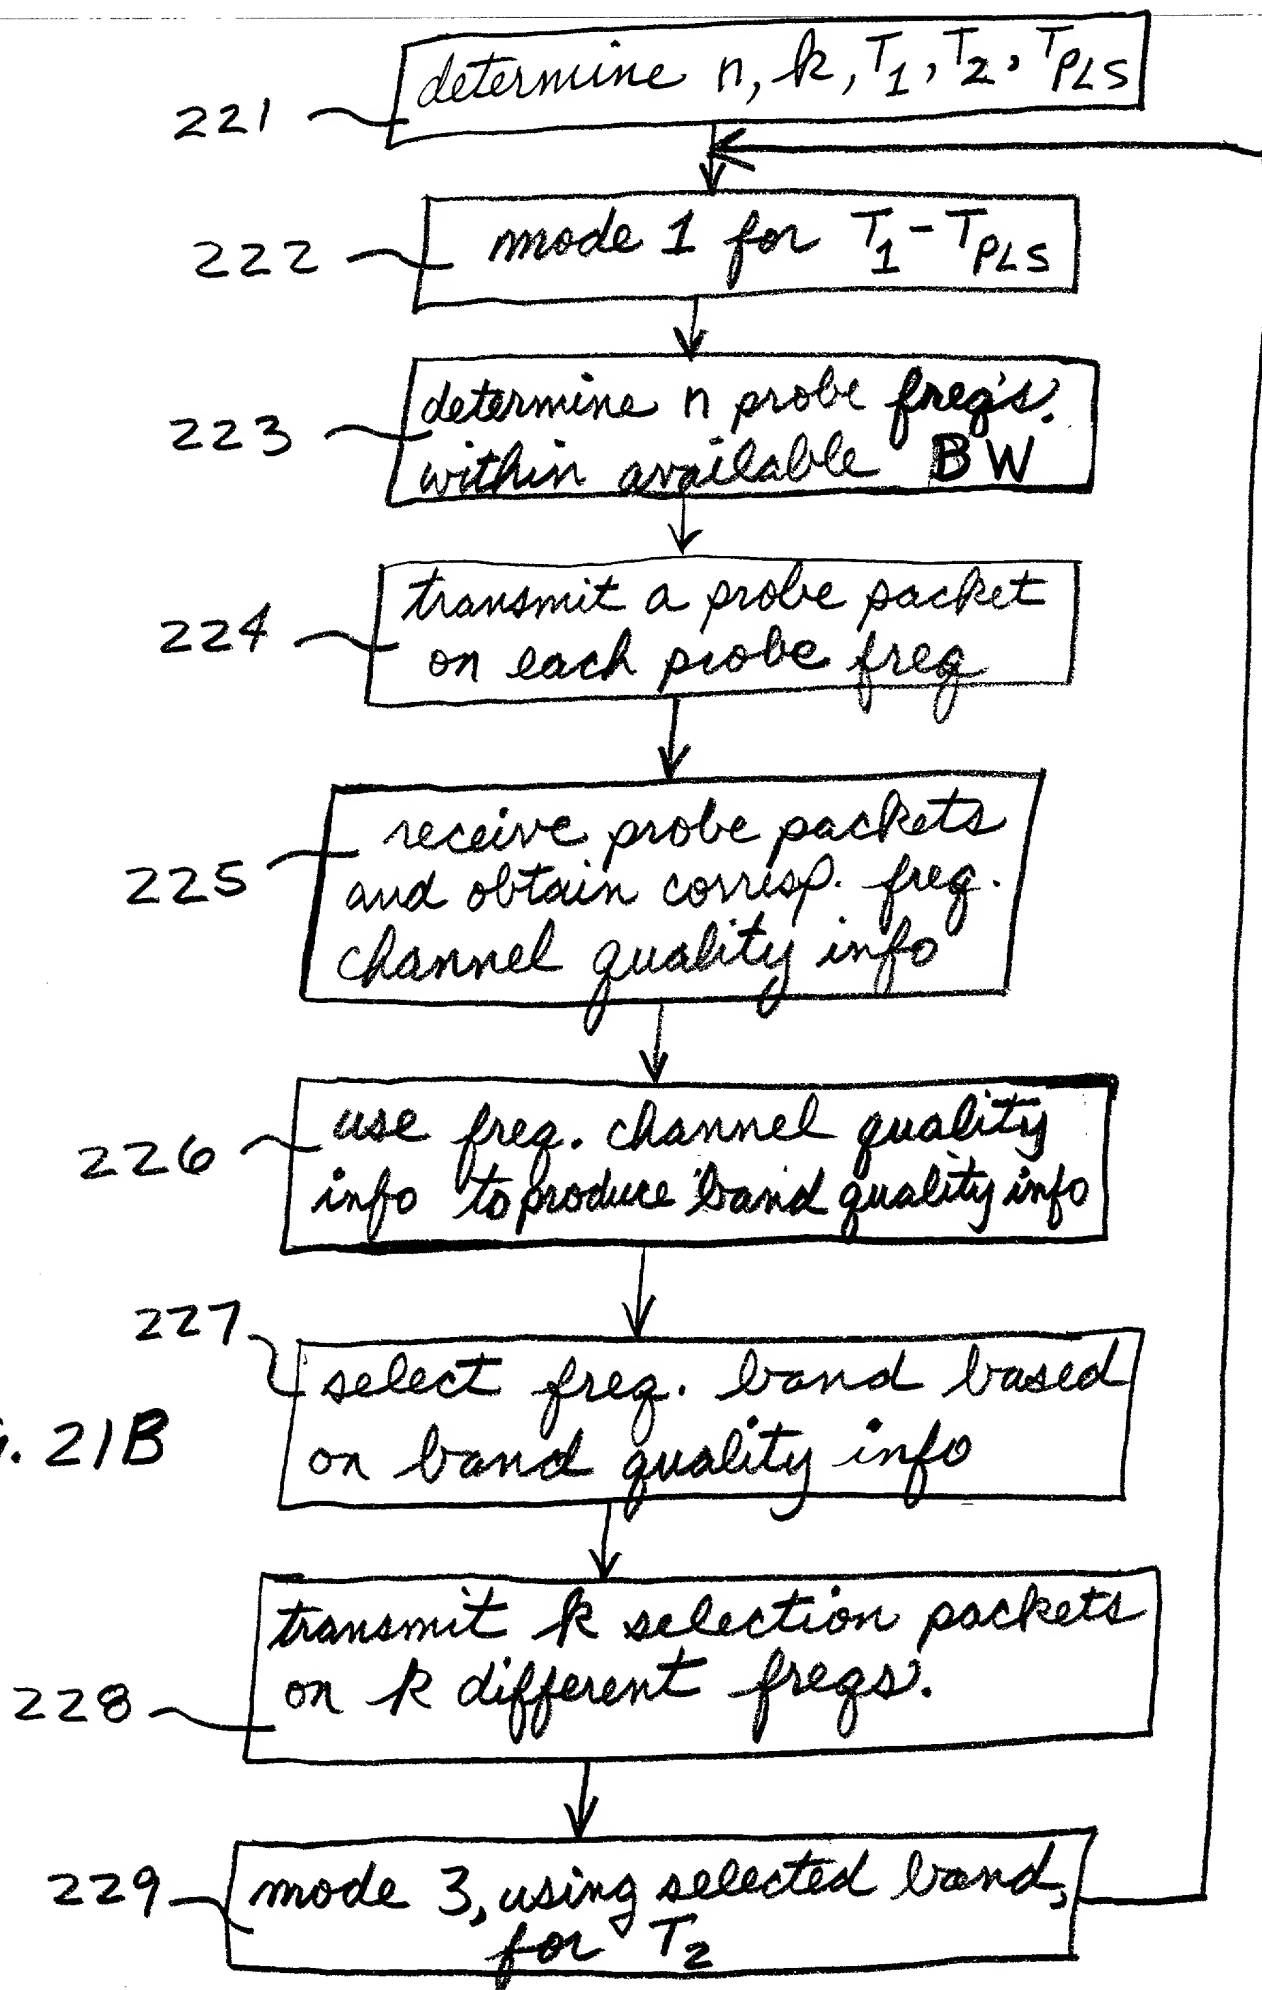 determine n, k, T1, T2, TPLS
221
mode 1 for T1 - TPLS
222
determine n probe freq's.
within available BW
223
transmit a probe packet
on each probe freq
224
receive probe packets
and obtain corresp. freq.
channel quality info
225
use freq. channel quality
info to produce band quality info
226
227
select freq. band based
on band quality info
. 21B
transmit k selection packets
on k different freqs.
228
mode 3, using selected band,
for T2
229